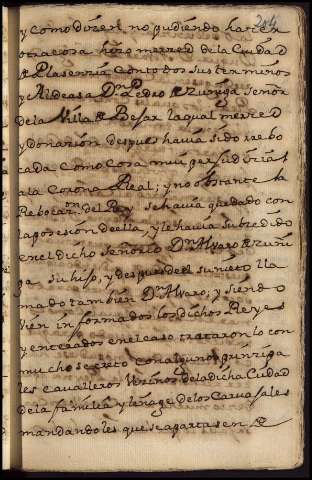 204
y como dizen no pudiendo hazer
otra cosa hizo merced de la Ciudad
de Plasenzia con todos sus terminos
y Aldeas a Dn Pedro de zuñiga señor
de la Villa de Besar la qual merced
y donazion despues havia sido rebo
cada como cosa muy perjudizial
a la Corona Real; y no obstante la
Rebocaon. del Rey se havia quedado con
la posesion de ella, y le havia subzedido
en el dicho señorio Dn Alvaro de zuñi
ga su hijo, y despues de el su nieto lla
mado tambien Dn Alvaro; y siendo
vien informados los dichos Reyes
y enterados en el caso trataron lo con
mucho secreto con algunos prinziga
les cavalleros Vezinos de la dicha Ciudad
de la familia y linage de los Carvajales
mandandoles que se apartasen de